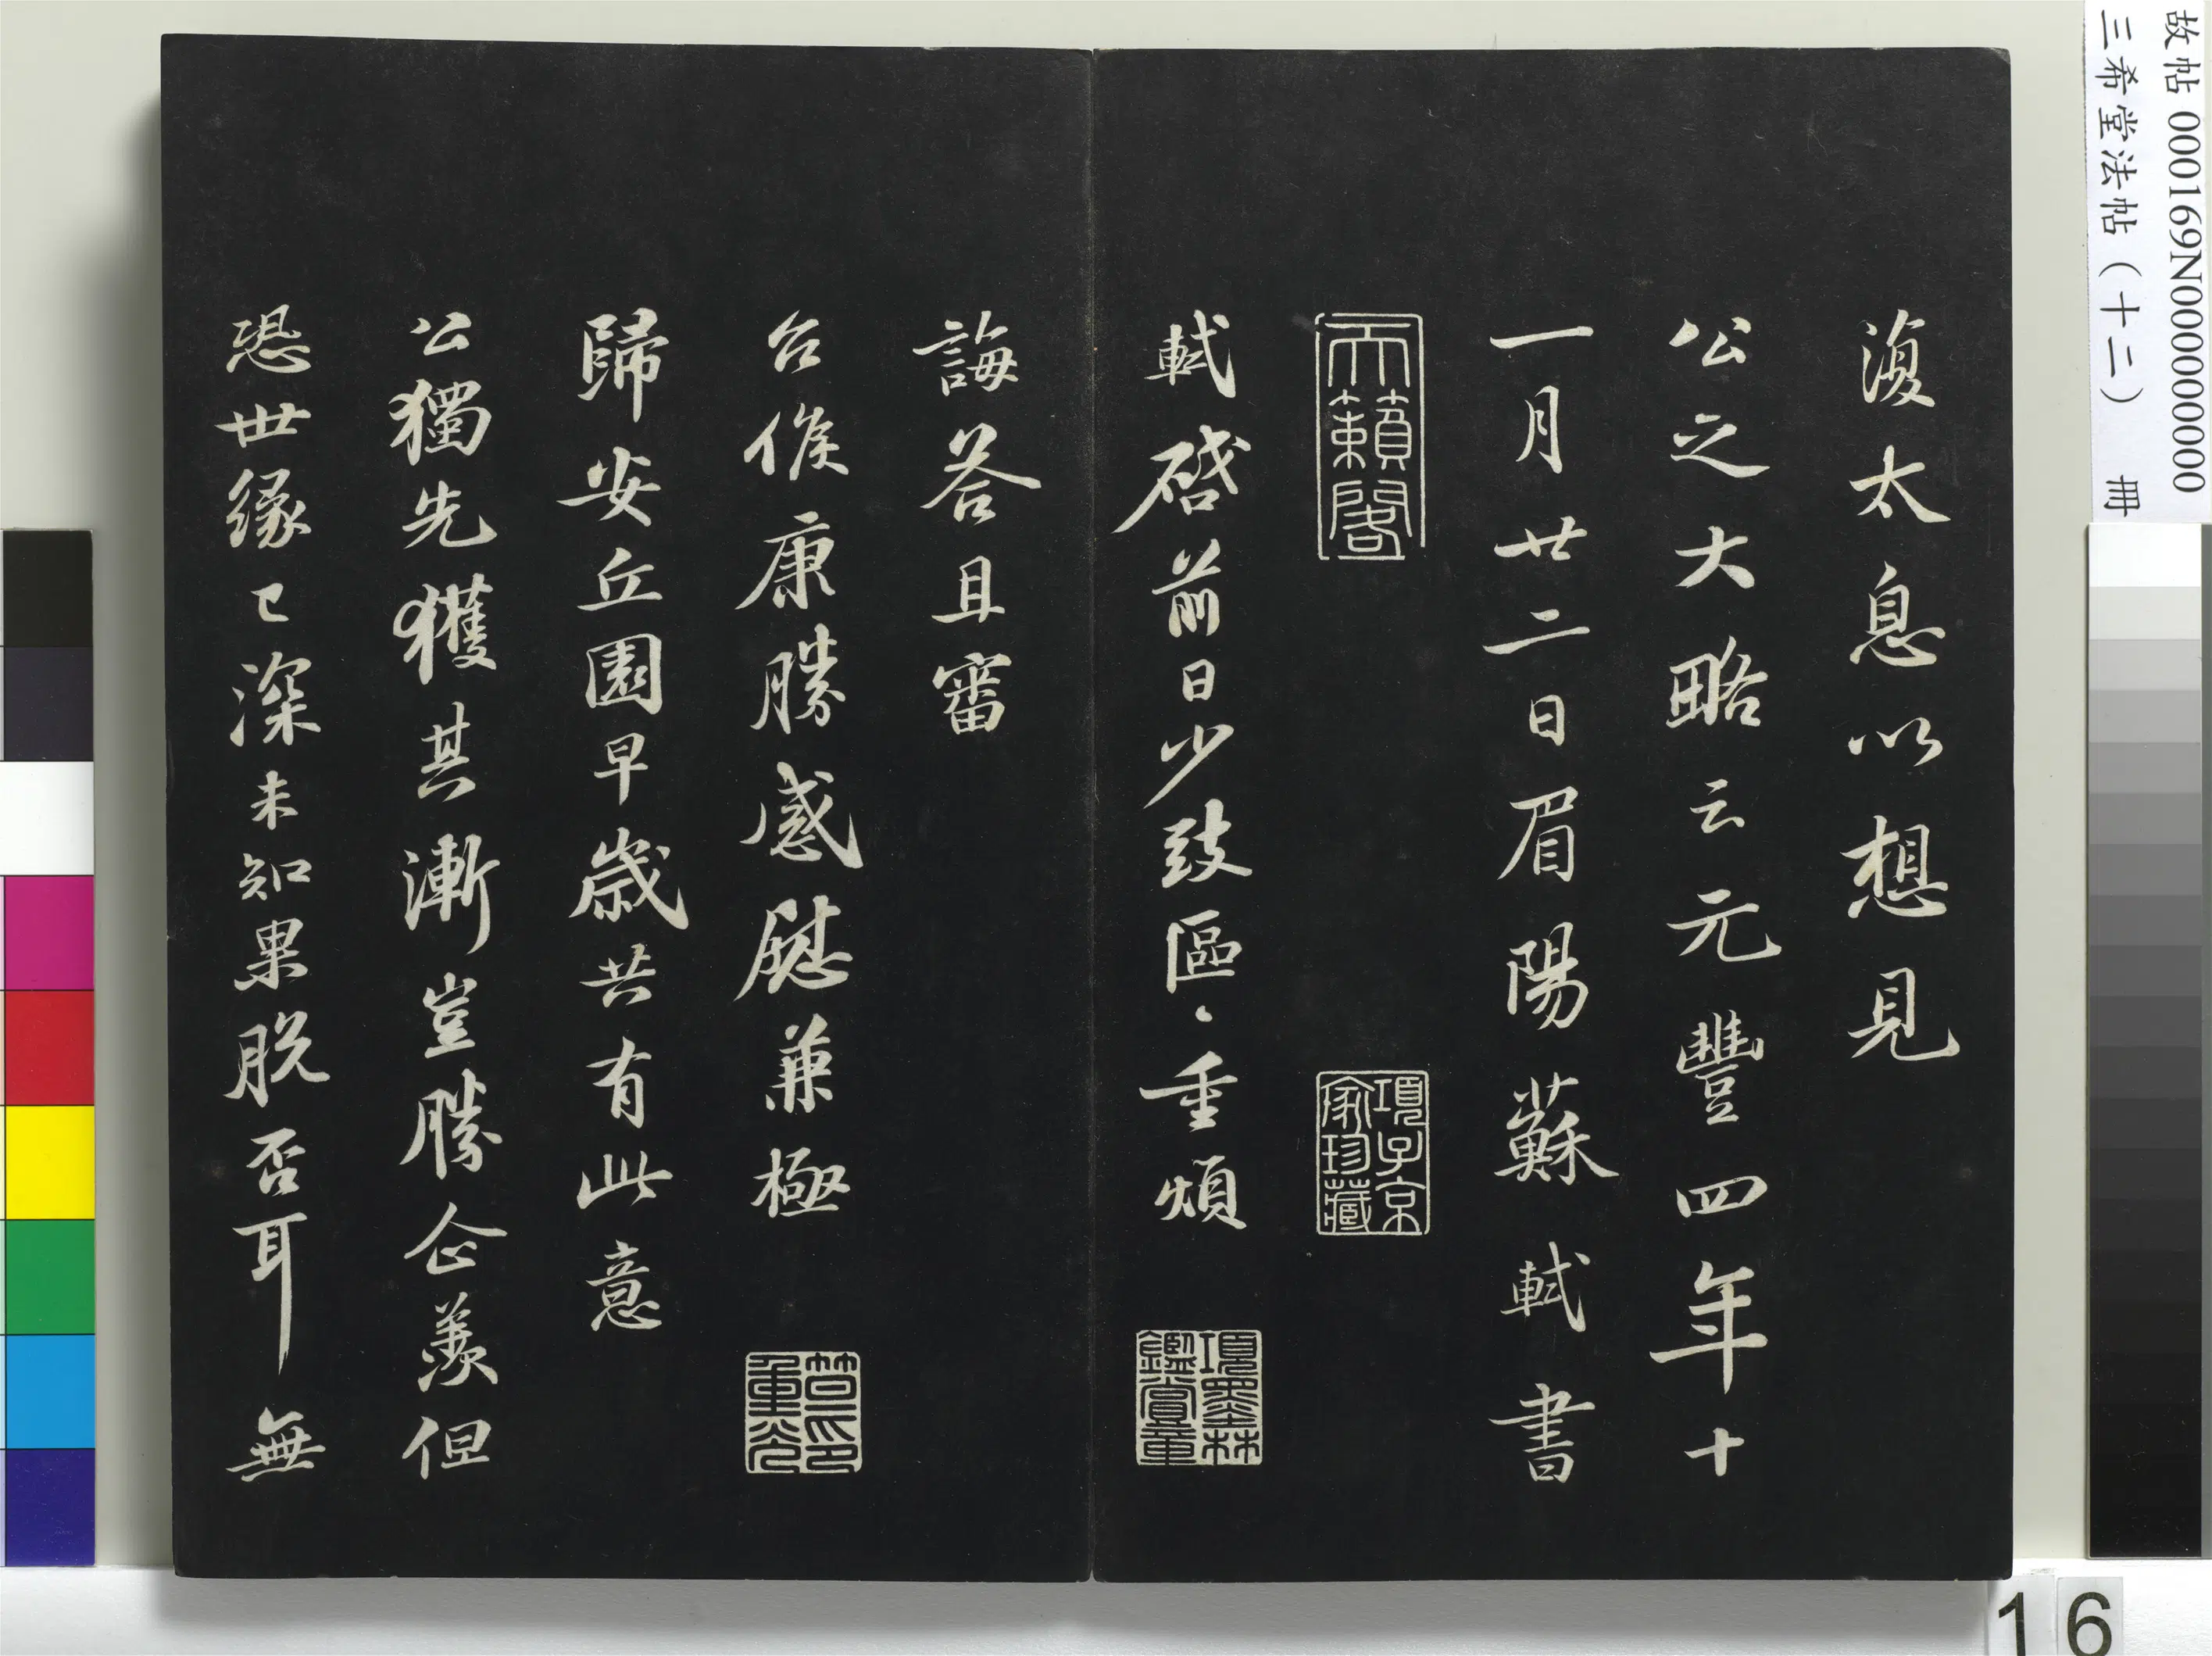 故帖 000169N000000000
三希堂法帖（十二） 冊
復太息以想見
公之大略云元豐四年十
一月廿二日眉陽蘇軾書
天籟閣
項子京家珍藏
軾啓前日少致區〻重煩
項墨林鑑賞章
誨荅且審
台候康勝感慰兼極
笪重光印
歸安丘園早歲共有此意
公獨先獲其漸豈勝企羨但
恐世緣已深未知果脫否耳無
16